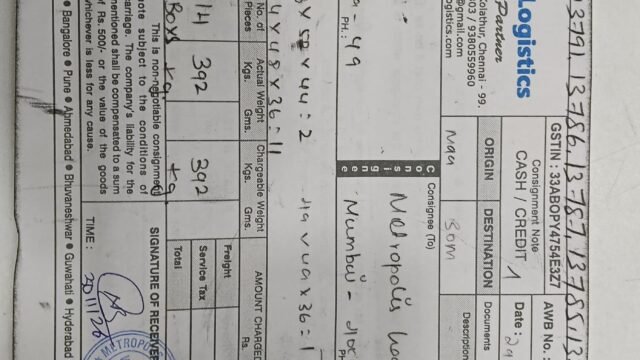 13791, 13786, 13787, 13785, 13
Logistics
Partner
Kolathur, Chennai - 99.
003 / 9380559960
@gmail.com
ogistics.com
GSTIN : 33ABOPY4754E3Z7
Consignment Note
CASH / CREDIT
AWB No.
Date :
ORIGIN
DESTINATION
Documents
Maa
Bom
Description
Consignee (To)
Metropolis
Mumbai -
PH.:
- 49
x 52 x 44 = 2
4 x 48 x 36 = 11
x 36 = 1
No. of
Pieces
Actual Weight
Kgs. Gms.
Chargeable Weight
Kgs. Gms.
AMOUNT CHARGED
Rs.
14
Boxs
392
kg
392
kg
Freight
Service Tax
Total
This is non-negotiable consignment
note subject to the conditions of
carriage. The company's liability for the
mentioned shall be compensated to a sum
of Rs. 500/- or the value of the goods
whichever is less for any cause.
SIGNATURE OF RECEIVER
TIME :
METROPO
● Bangalore ● Pune ● Ahmedabad ● Bhuvaneshwar ● Guwahati ● Hyderabad